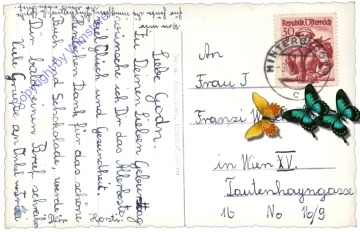 Liebe Godn.
Zu Deinem Lieben Geburtstag
wünsche ich Dir das Allerbeste.
Viel Glück und Gesundheit.
Vielen Dank für das schöne
Buch und Schokolade, werde
Dir bald einen Brief schreiben
Viele Grüße an Onkel
Dein Horsti
An
Frau J
Franzi W
in Wien XV.
Tautenhayngasse
16 No 16/9
Republik Österreich
30